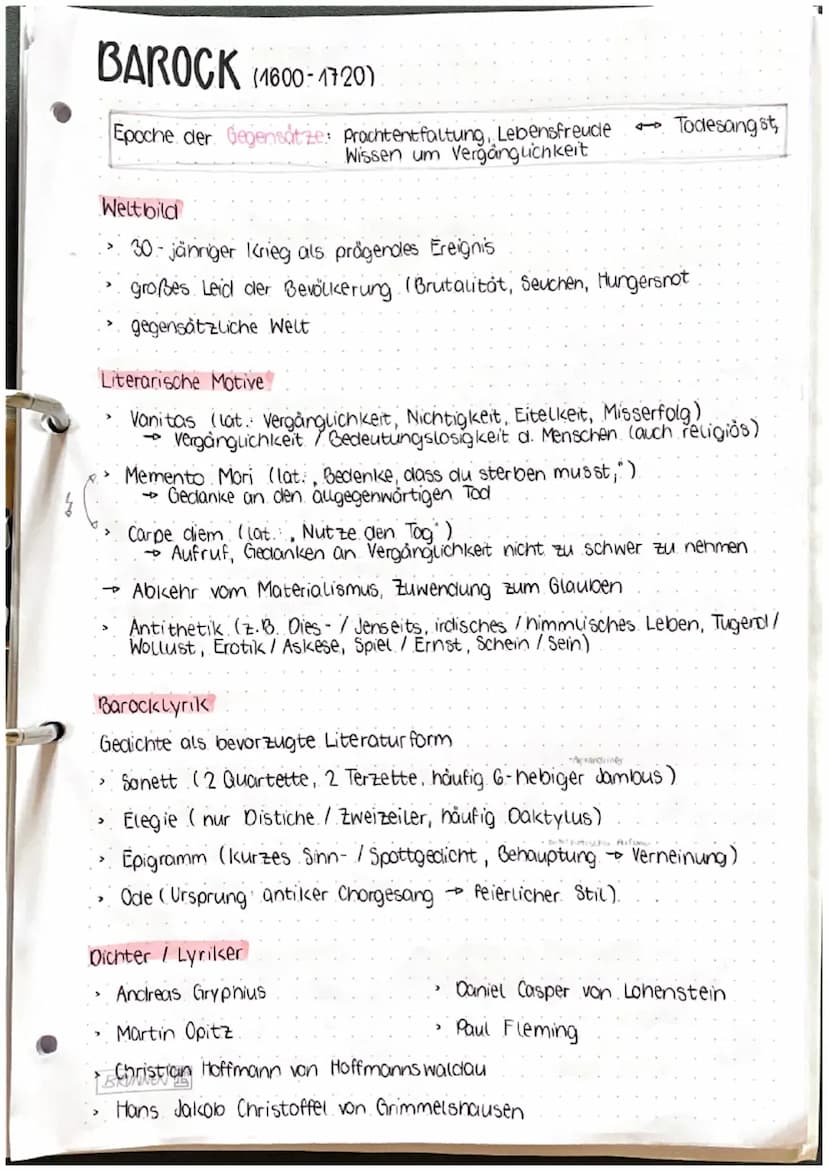 BAROCK (1600-1720)
Epoche der Gegensätze: Prachtentfaltung, Lebensfreude ↔ Todesangst,
Wissen um Vergänglichkeit
Weltbild
> 30-jähriger Krieg als prägendes Ereignis
> großes Leid der Bevölkerung (Brutalität, Seuchen, Hungersnot
> gegensätzliche Welt
Literarische Motive
> Vanitas (lat.: Vergänglichkeit, Nichtigkeit, Eitelkeit, Misserfolg)
→ Vergänglichkeit / Bedeutungslosigkeit d. Menschen (auch religiös)
> Memento Mori (lat.: „Bedenke, dass du sterben musst,")
→ Gedanke an den allgegenwärtigen Tod
> Carpe diem (lat.: „Nutze den Tag")
→ Aufruf, Gedanken an Vergänglichkeit nicht zu schwer zu nehmen
→ Abkehr vom Materialismus, Zuwendung zum Glauben
> Antithetik (z.B. Dies- / Jenseits, irdisches / himmlisches Leben, Tugend /
Wollust, Erotik / Askese, Spiel / Ernst, Schein / Sein)
Barocklyrik
Gedichte als bevorzugte Literaturform
Alexandriner
> Sonett (2 Quartette, 2 Terzette, häufig 6-hebiger Jambus)
> Elegie (nur Distiche / Zweizeiler, häufig Daktylus)
> Epigramm (kurzes Sinn- / Spottgedicht, Behauptung → Verneinung)
> Ode (Ursprung: antiker Chorgesang → feierlicher Stil)
Dichter / Lyriker
> Andreas Gryphius
> Daniel Casper von Lohenstein
> Martin Opitz
> Paul Fleming
> Christian Hoffmann von Hoffmannswaldau
BRUNNEN
> Hans Jakob Christoffel von Grimmelshausen